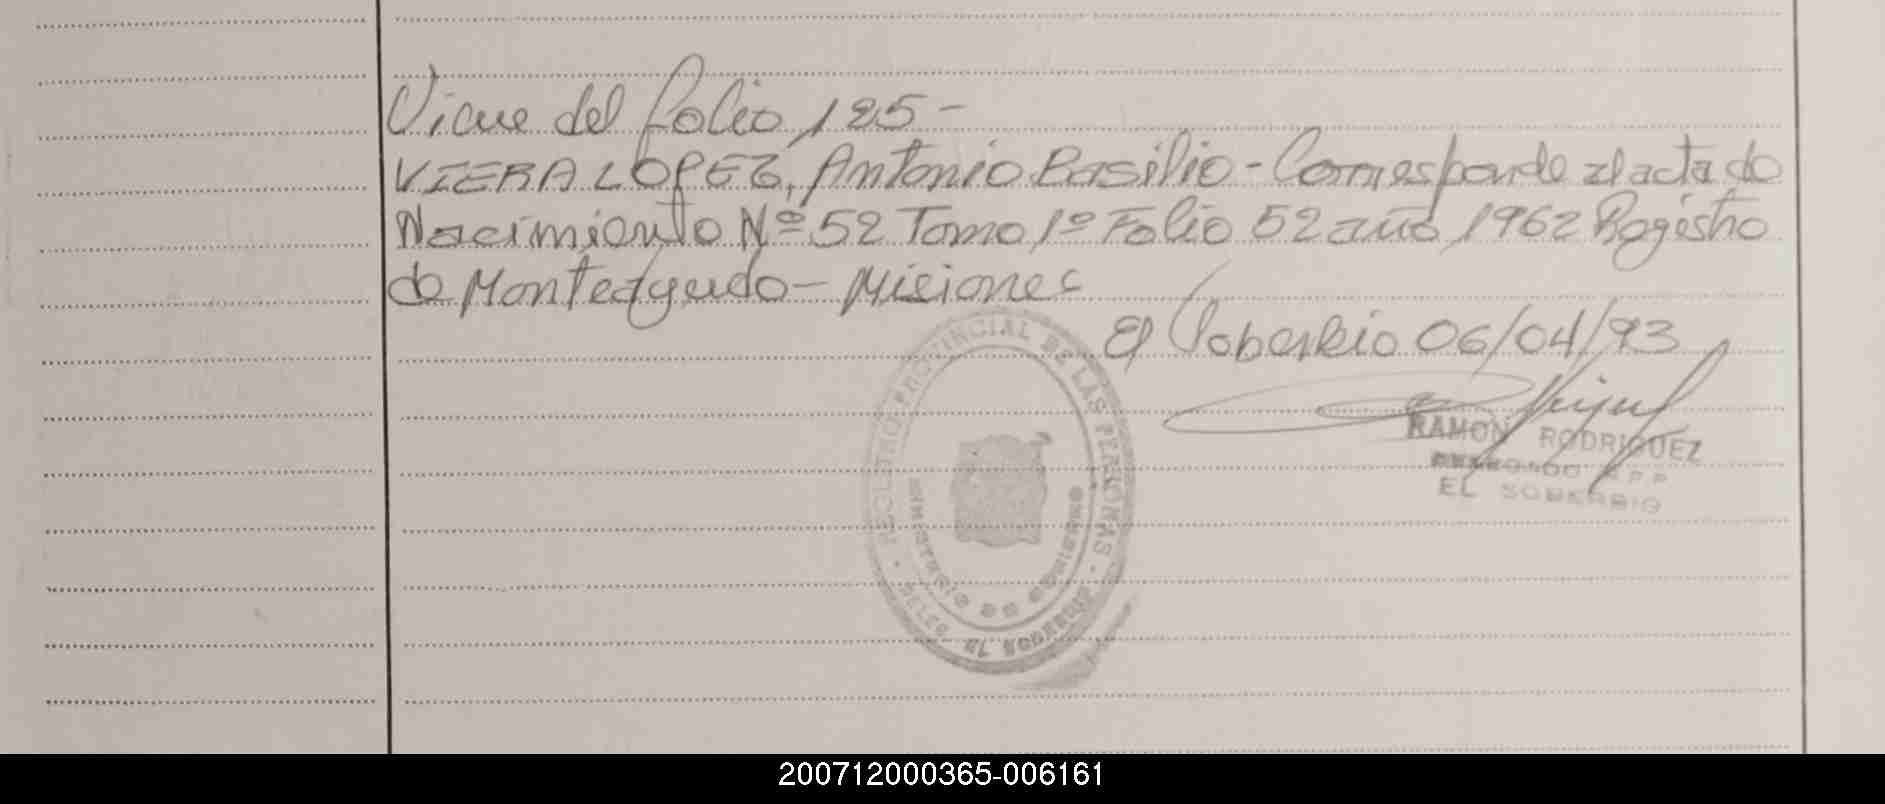 Viene del folio 125-
VIERA LOPEZ, Antonio Basilio - Corresponde al acta de
Nacimiento Nº 52 Tomo 1º Folio 52 año 1962 Registro
de Monteagudo - Misiones
El Soberbio 06/04/93
RAMON RODRIGUEZ
R.P.P
EL SOBERBIO
REGISTRO PROVINCIAL DE LAS PERSONAS
MINISTERIO DE GOBIERNO
EL SOBERBIO
200712000365-006161